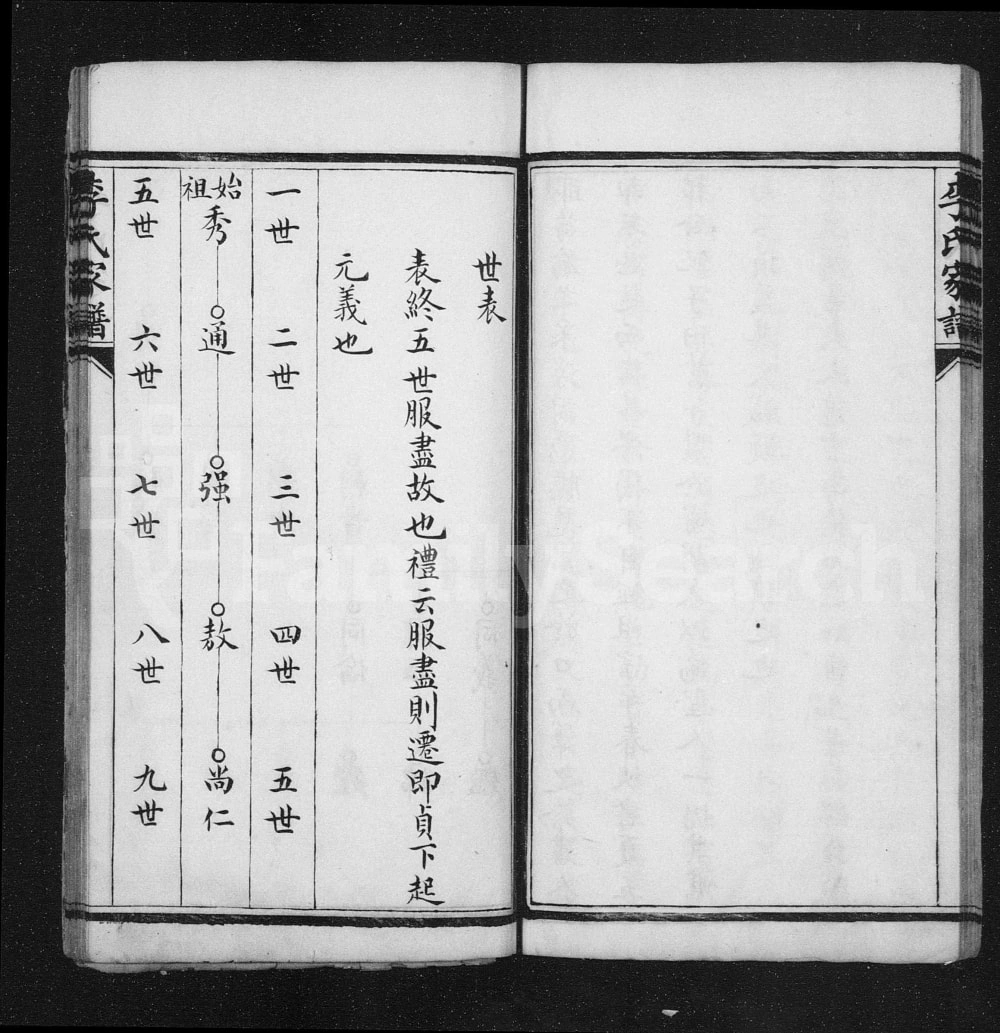 李氏家譜
世表
表終五世服盡故也禮云服盡則遷即貞下起
元義也
一世 二世 三世 四世 五世
始祖秀 通 强 敖 尚仁
五世 六世 七世 八世 九世
李氏家譜